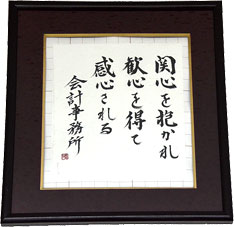 関心を抱かれ
歓心を得て
感心される
会計事務所